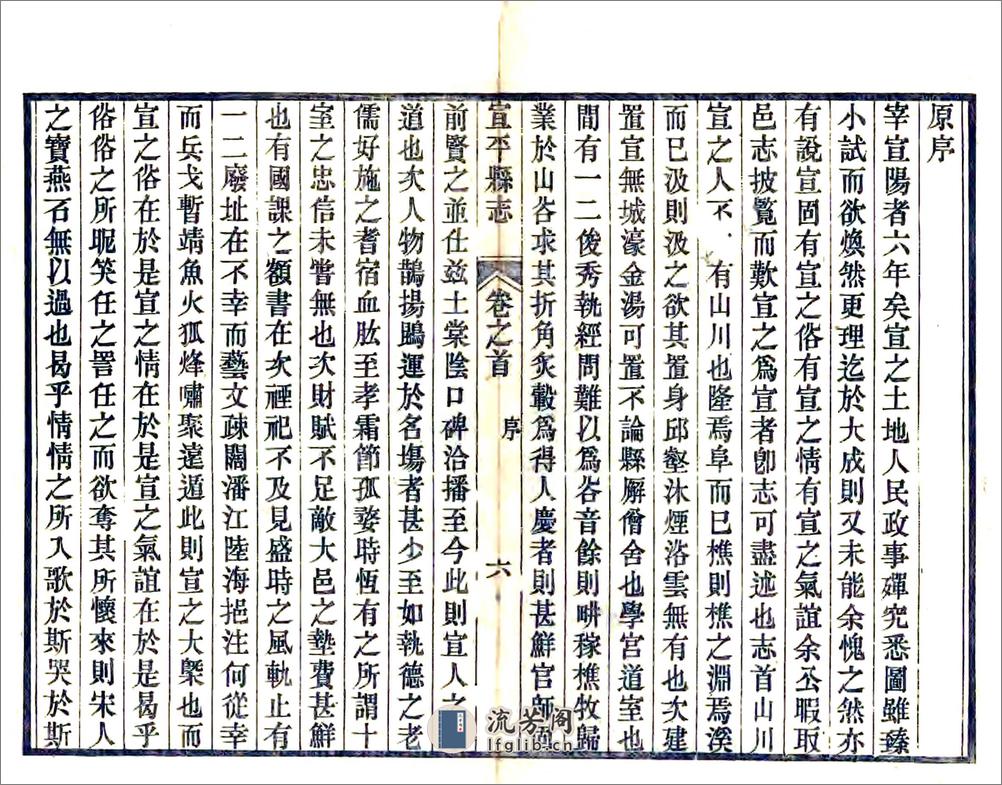 原序
宰宣陽者六年矣宣之土地人民政事殫究悉圖雖臻
小試而欲煥然更理迄於大成則又未能余愧之然亦
有說宣固有宣之俗有宣之情有宣之氣誼余公暇取
邑志披覽而歎宣之爲宣者卽志可盡述也志首山川
宣之人不有山川也隆焉阜而已樵則樵之淵焉溪
而已汲則汲之欲其置身邱壑沐煙浴雲無有也次建
置宣無城濠金湯可置不論縣廨僧舍也學宮道室也
間有一二俊秀執經問難以爲谷音餘則畊稼樵牧歸
業於山各求其折角炙轂爲得人慶者則甚鮮官師
宣平縣志 卷之首 序 六
前賢之並仕兹土棠陰口碑洽播至今此則宣人之
道也次人物鵲揚鵾運於名塲者甚少至如執德之老
儒好施之耆宿血肱至孝霜節孤嫠時恆有之所謂十
室之忠信未嘗無也次財賦不足敵大邑之墊費甚鮮
也有國課之額書在次禋祀不及見盛時之風軌止有
一二廢址在不幸而藝文疎闊潘江陸海挹注何從幸
而兵戈暫靖魚火狐烽嘯聚遠遁此則宣之大槩也而
宣之俗在於是宣之情在於是宣之氣誼在於是曷乎
俗俗之所呢笑任之詈任之而欲奪其所懷來則宋人
之寶燕石無以過也曷乎情情之所入歌於斯哭於斯
流芳阁
lfglib.cn